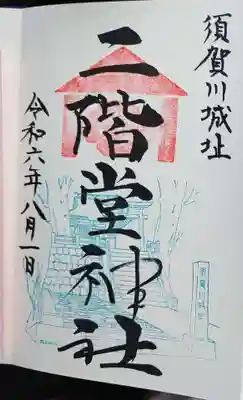 須賀川城址
二階堂神社
令和六年八月一日